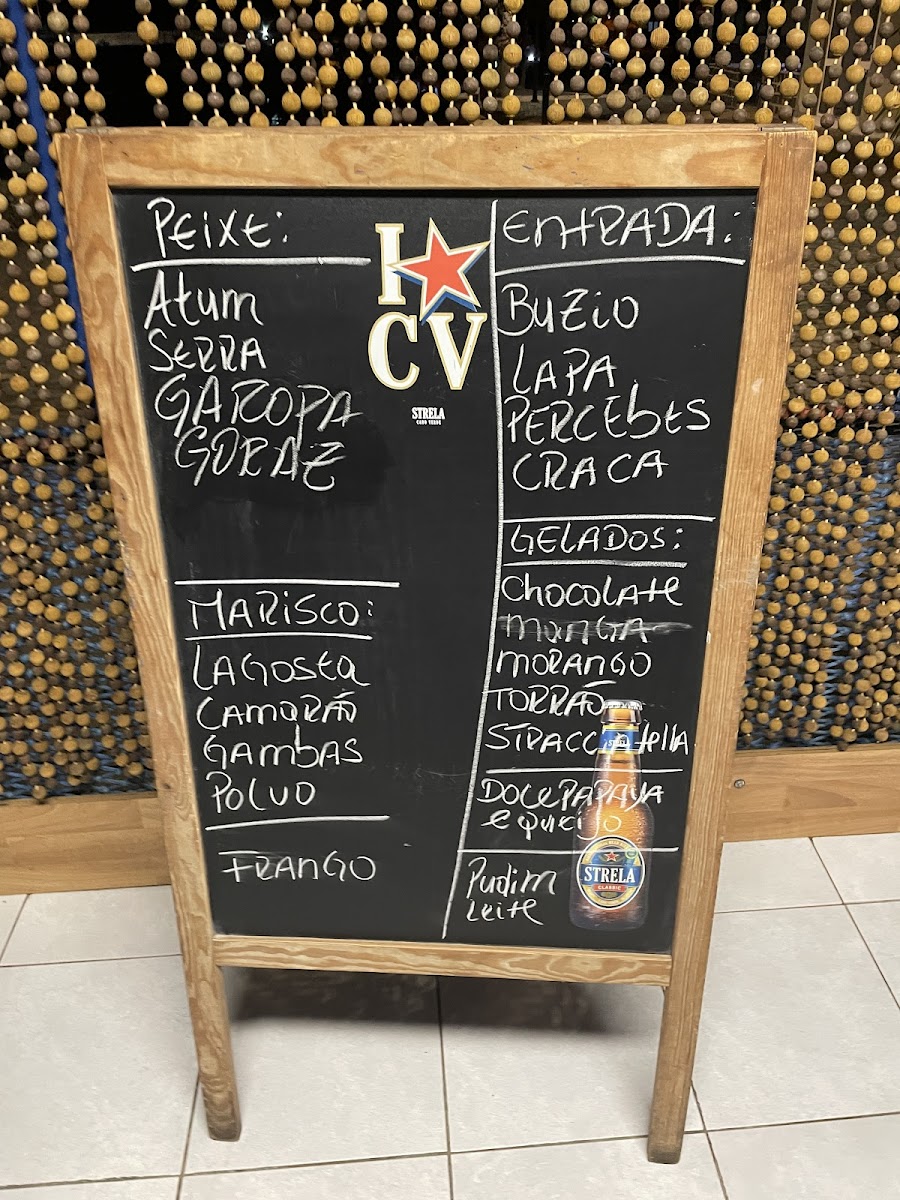 PEIXE:
Atum
SERRA
GAROPA
GORAZ
MARISCO:
LAGOSta
CAMARÃO
GAMbAS
POLVO
FRANGO
I
CV
STRELA
CABO VERDE
ENtRADA:
BUZIO
LAPA
PERCEbES
CRACA
GELADOS:
ChocolAtE
mANGA
mORANGO
TORRÃO
STRACCIAtellA
DOCE PAPAYA
e queijo
Pudim
Leite
STRELA
STRELA
CLASSIC